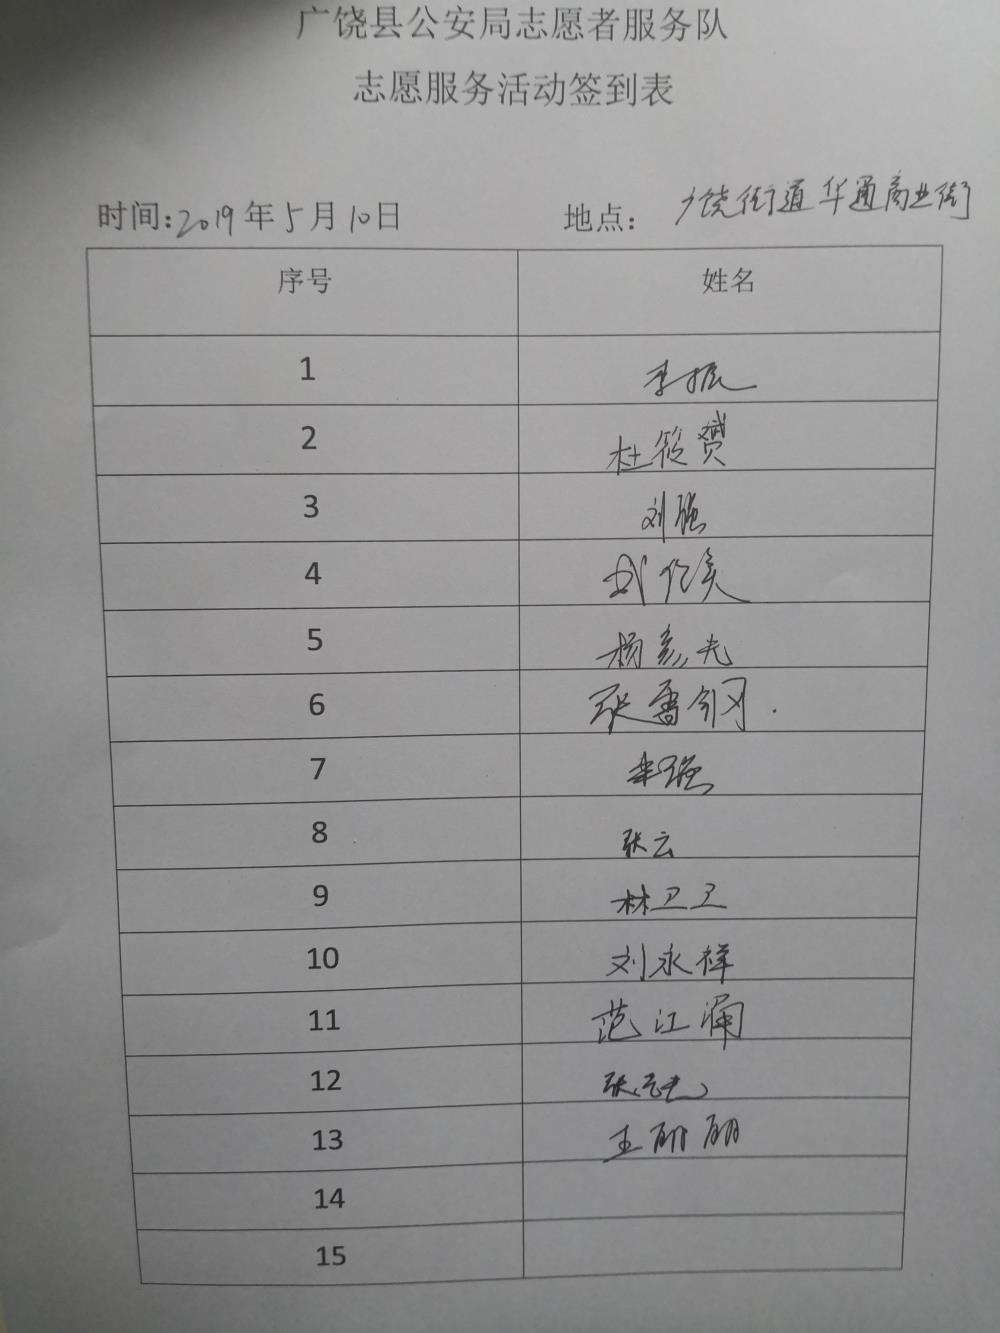 广饶县公安局志愿者服务队
志愿服务活动签到表
时间:2019年5月10日 地点: 广饶街道华通商业街
序号 姓名
1 李振
2 杜筱赟
3 刘强
4
5 杨彦光
6 张雷钢.
7 李强
8 张云
9 林卫卫
10 刘永祥
11 范江涌
12 张
13 王丽丽
14
15